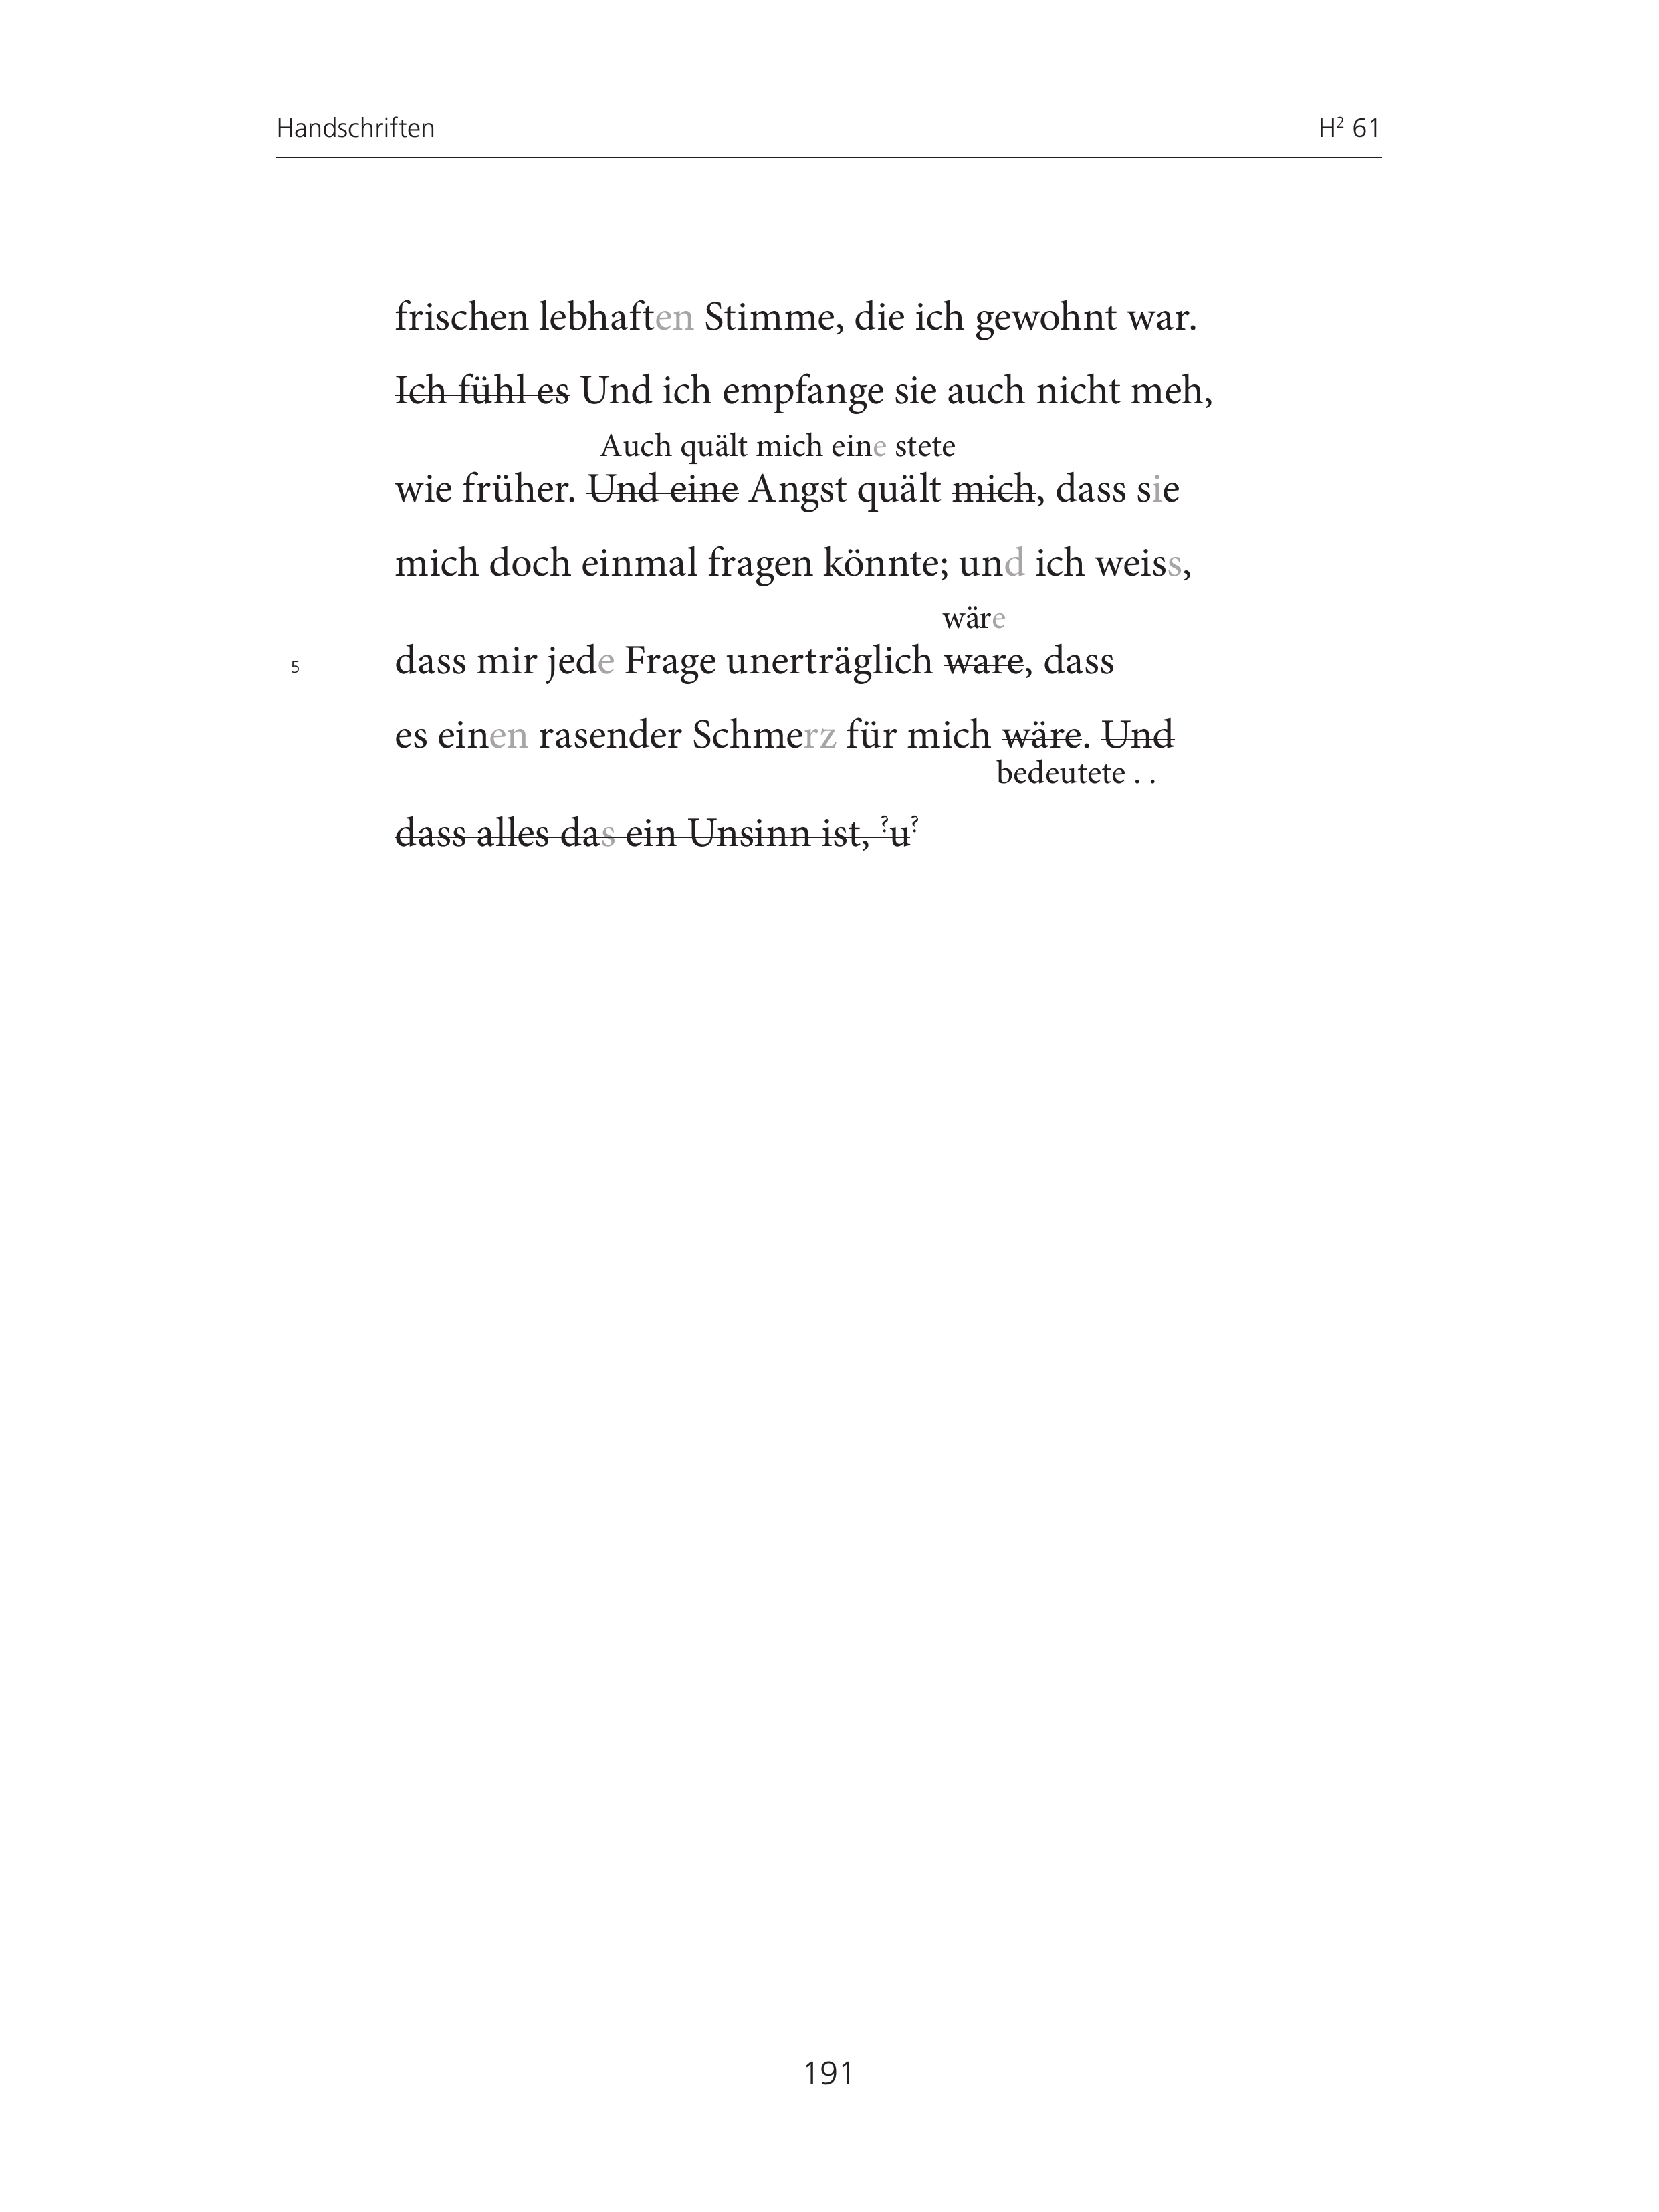 Handschriften H² 61
frischen lebhaften Stimme, die ich gewohnt war.
Ich fühl es Und ich empfange sie auch nicht meh,
Auch quält mich eine stete
wie früher. Und eine Angst quält mich, dass sie
mich doch einmal fragen könnte; und ich weiss,
wäre
5 dass mir jede Frage unerträglich ware, dass
es einen rasender Schmerz für mich wäre. Und
bedeutete . .
dass alles das ein Unsinn ist, ?u?
191